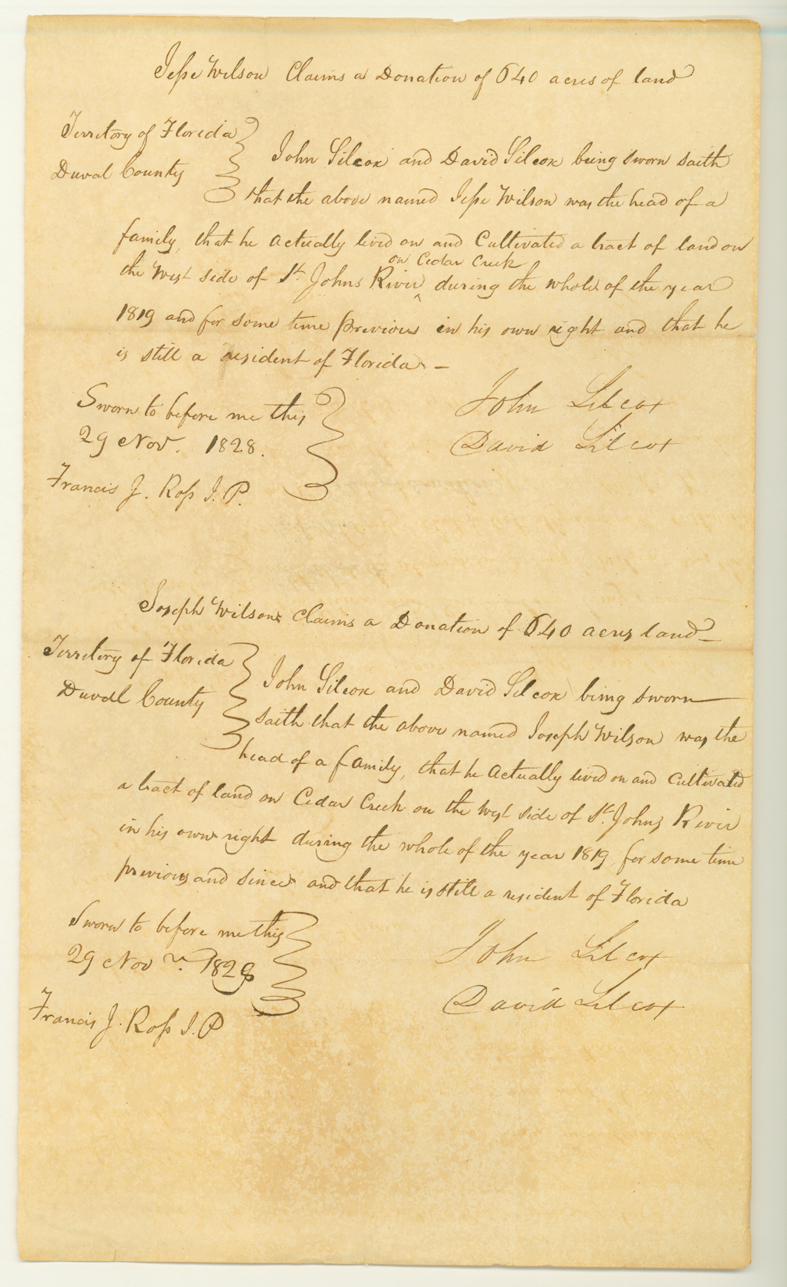 Jesse Wilson Claims a Donation of 640 acres of land
Territory of Florida
Duval County
John Silcox and David Silcox being sworn saith
that the above named Jesse Wilson was the head of a
family, that he actually lived on and Cultivated a tract of land on
on Cedar Creek
the West side of St Johns River ^ during the whole of the year
1819 and for some time previous in his own right and that he
is still a resident of Florida. —
Sworn to before me this
29 Nov. 1828.
Francis J. Ross J. P.
John Silcox
David Silcox
Joseph Wilson Claims a Donation of 640 acres land —
Territory of Florida
Duvall County
John Silcox and David Silcox being sworn
saith that the above named Joseph Wilson was the
head of a family, that he actually lived on and cultivated
a tract of land on Cedar Creek on the West side of St Johns River
in his own right during the whole of the year 1819 for some time
previous and since and that he is still a resident of Florida
Sworn to before me this
29 Novr. 1828
Francis J. Ross J. P
John Silcox
David Silcox